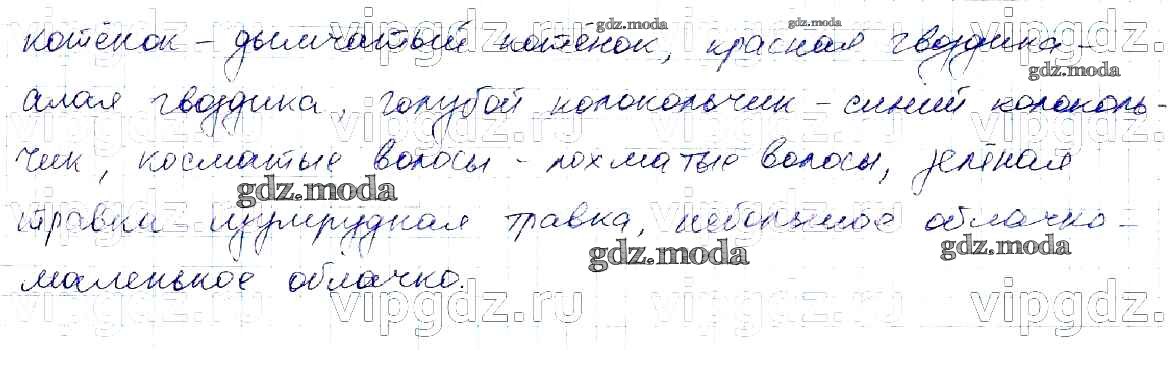 котёнок – дымчатый котёнок, красная гвоздика –
алая гвоздика, голубой колокольчик – синий колоколь-
чик, косматые волосы – лохматые волосы, зелёная
травка – изумрудная травка, небольшое облачко –
маленькое облачко.
gdz.moda
gdz.moda
gdz.moda
gdz.moda
gdz.moda
gdz.moda
vipgdz.ru
vipgdz.ru
vipgdz.ru
vipgdz.ru
vipgdz.ru
vipgdz.ru
vipgdz.ru
vipgdz.ru
vipgdz.ru
vipgdz.ru
vipgdz.ru
vipgdz.ru